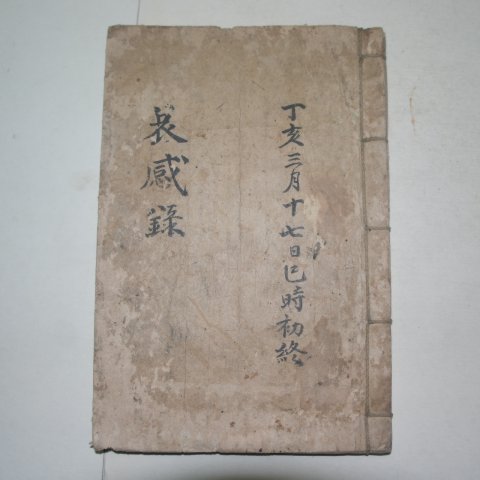 丁亥三月十七日巳時初終
哀感錄